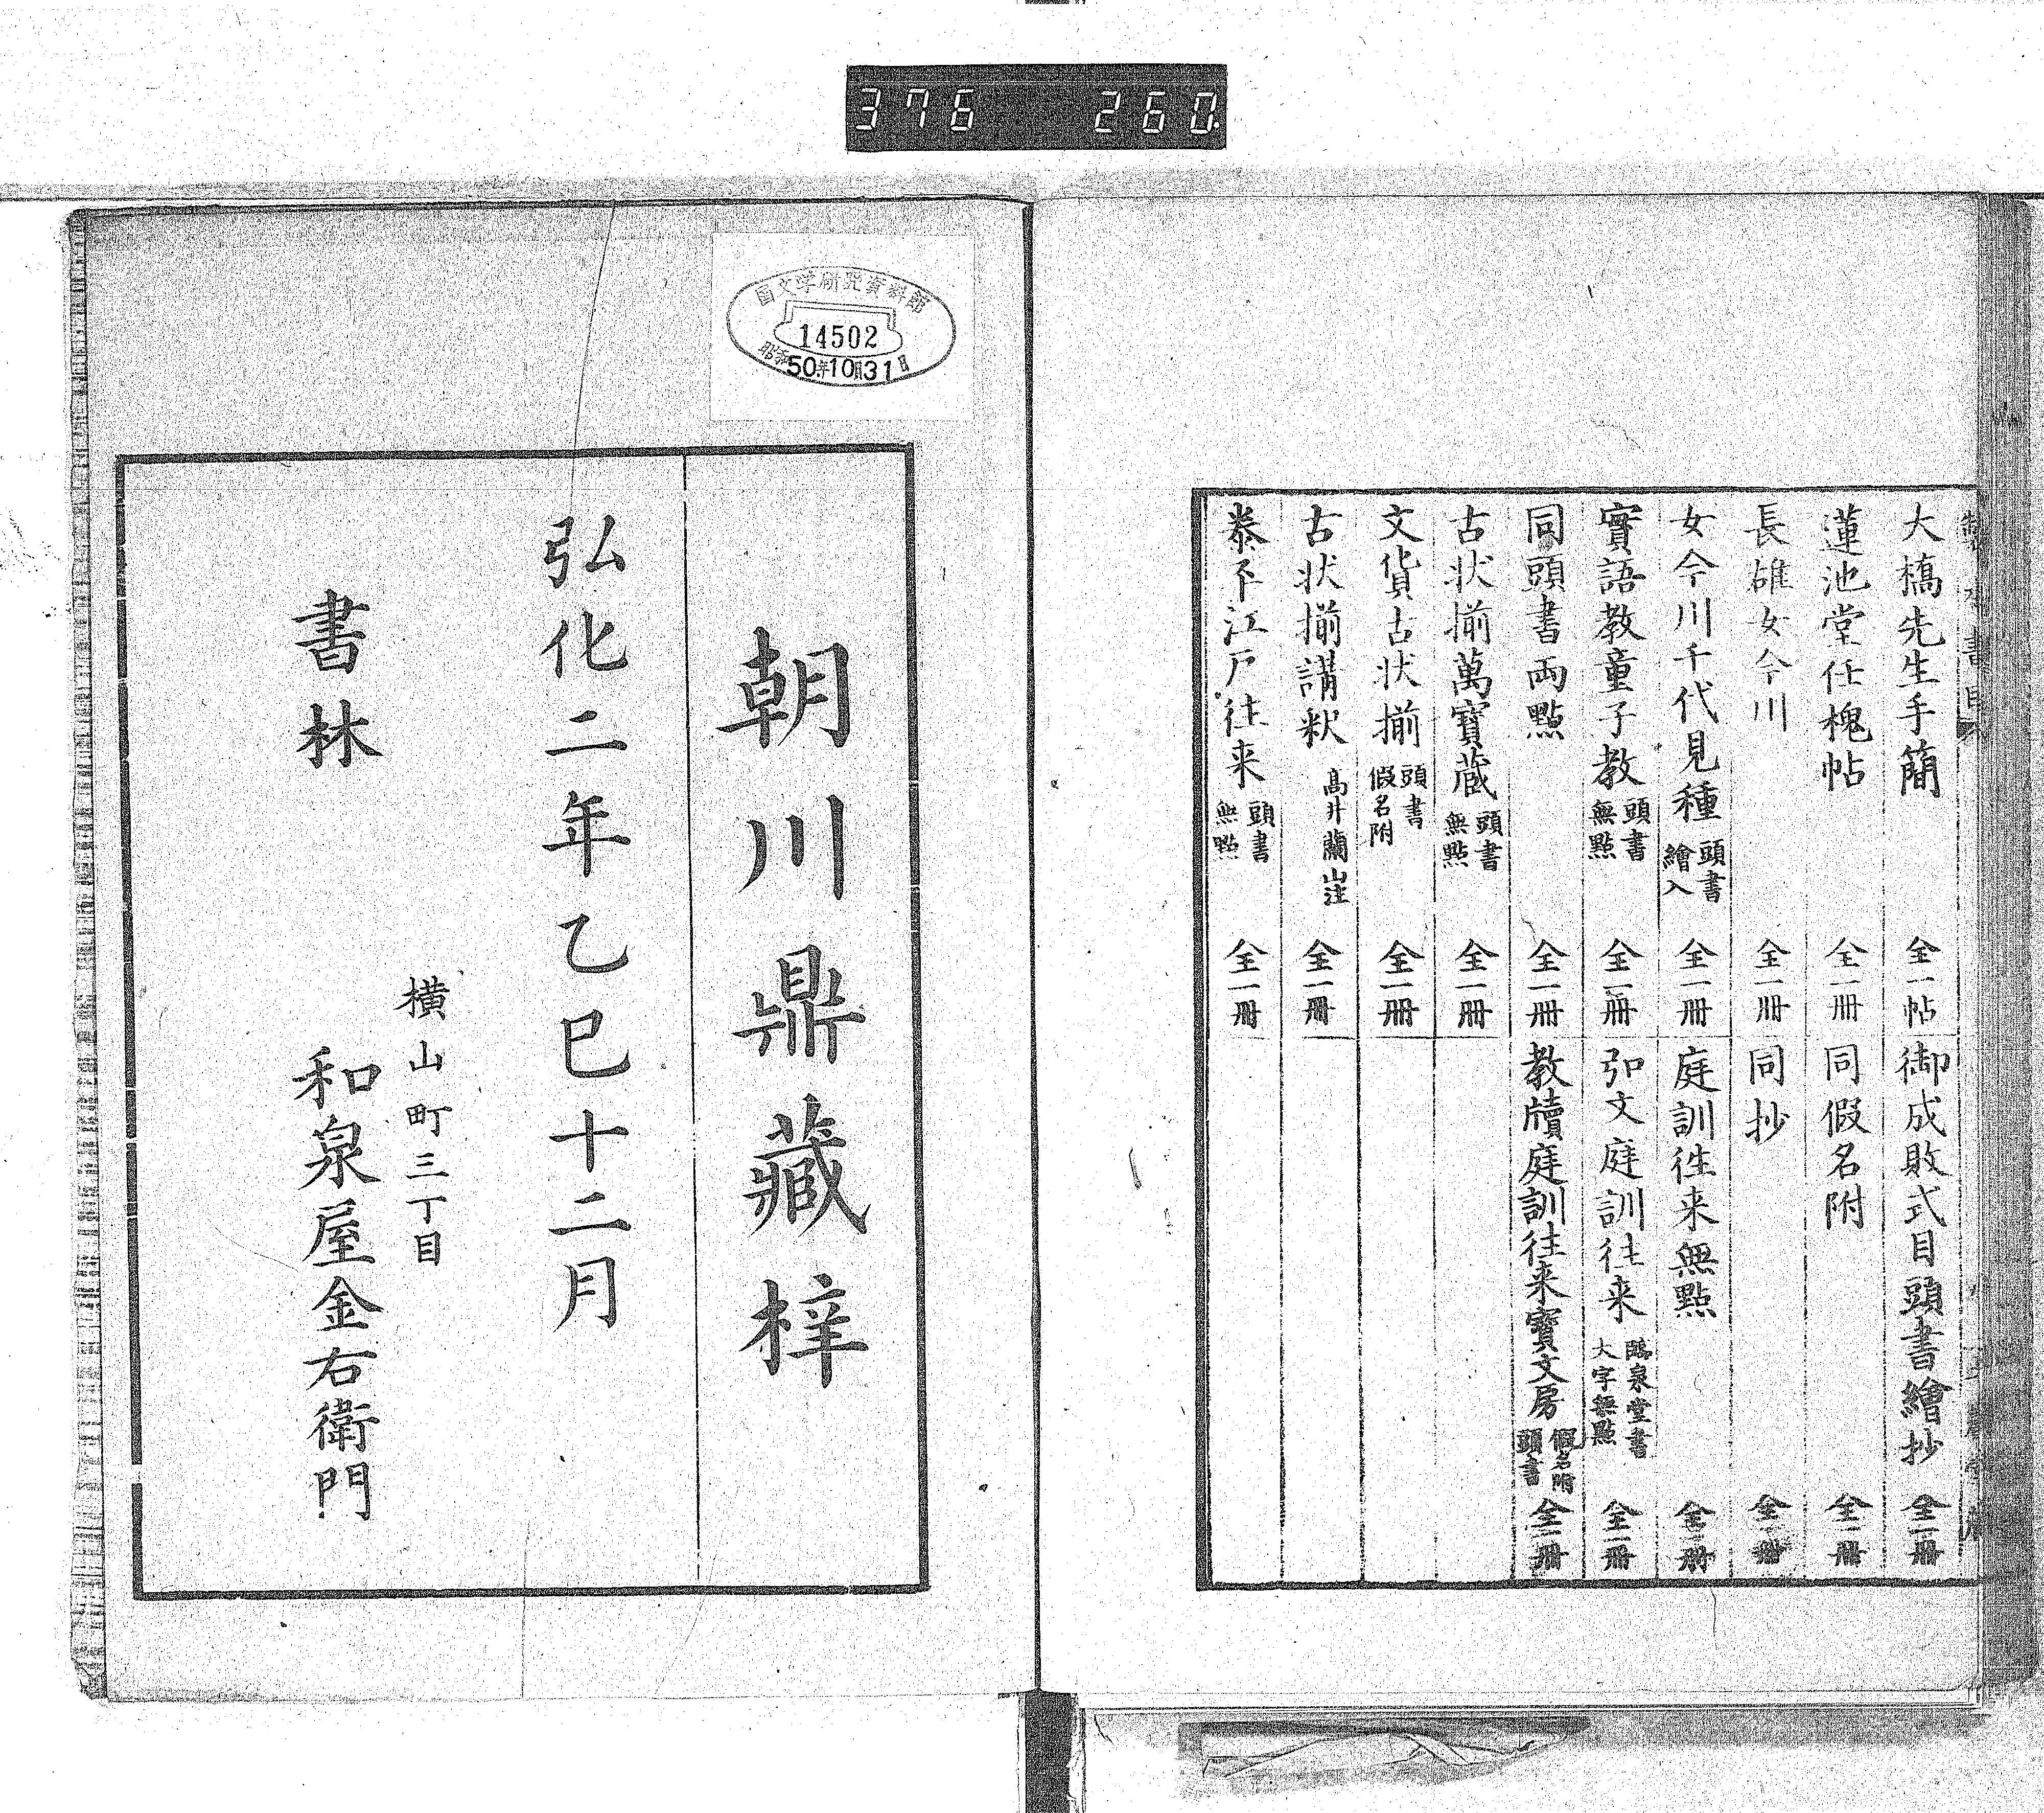 376 260
大橋先生手簡 全一帖
蓮池堂任槐帖 全一冊
長雄女今川 全一冊
女今川千代見種 頭書繪入 全一冊
實語教童子教 頭書無點 全一冊
同頭書両點 全一冊
古状揃萬寳蔵 頭書無點 全一冊
文貨古状揃 頭書假名附 全一冊
古状揃講釈 高井蘭山注 全一冊
泰平江戸往来 頭書無點 全一冊
御成敗式目頭書繪抄 全一冊
同假名附 全一冊
同抄 全一冊
庭訓往来無點 全一冊
弘文庭訓往来 臨泉堂書大字無點 全一冊
教牘庭訓往来寳文房 假名附頭書 全一冊
国文学研究資料館
14502
昭和50年10月31日
朝川鼎藏梓
弘化二年乙巳十二月
横山町三丁目
書林 和泉屋金右衛門